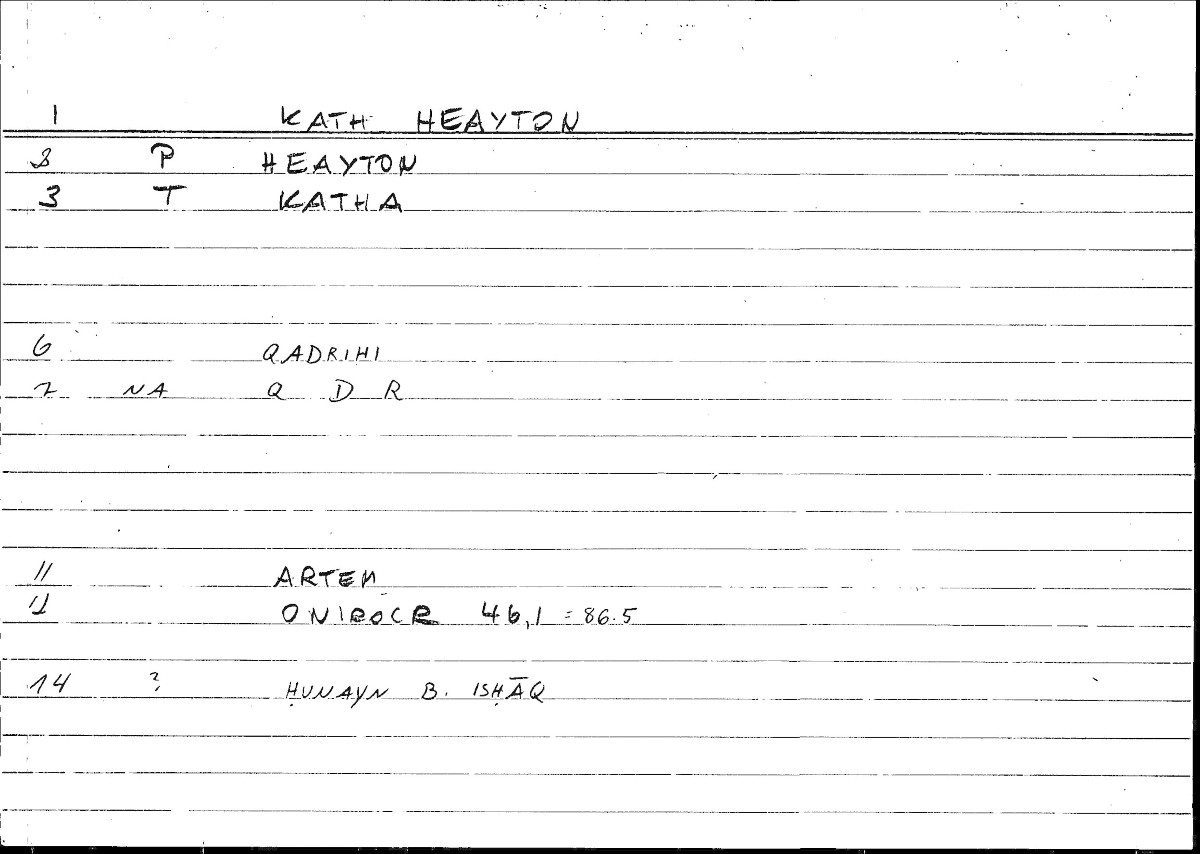 1 KATH HEAYTON
2 P HEAYTON
3 T KATHA
6 QADRIHI
7 NA Q D R
11 ARTEM
12 ONIROCR 46,1 = 86.5
14 ? ḤUNAYN B. ISḤĀQ